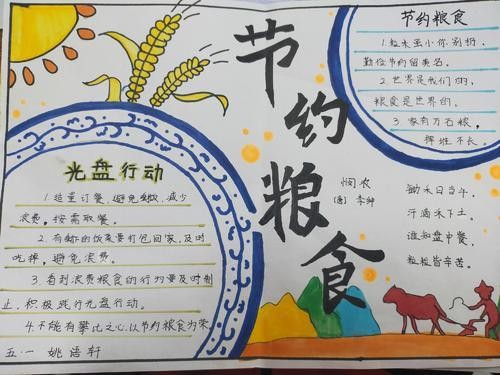 节约粮食
节约粮食
1.粒米虽小你别扔,
勤俭节约留美名。
2.世界是我们的,
粮食是世界的。
3.家有万石粮,
挥堆不长。
光盘行动
1.适量订餐,避免剩餐,减少
浪费。按需取餐。
2.有剩的饭菜要打包回家,及时
吃掉,避免浪费。
3.看到浪费粮食的行为要及时制
止,积极践行光盘行动。
4.不能有攀比之心,以节约粮食为荣
悯农
(唐) 李绅
锄禾日当午,
汗滴禾下土。
谁知盘中餐,
粒粒皆辛苦。
五·一 姚语轩